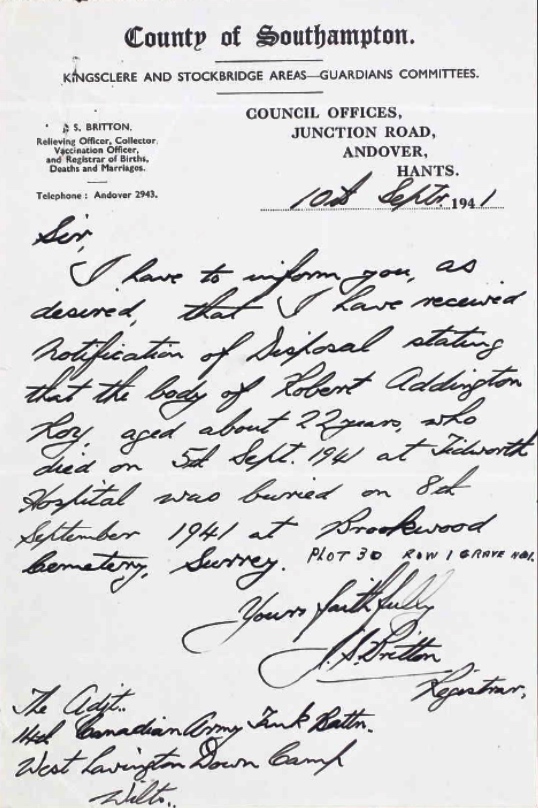 County of Southampton.
KINGSCLERE AND STOCKBRIDGE AREAS—GUARDIANS COMMITTEES.
S. BRITTON.
Relieving Officer, Collector,
Vaccination Officer,
and Registrar of Births,
Deaths and Marriages.
Telephone : Andover 2943.
COUNCIL OFFICES,
JUNCTION ROAD,
ANDOVER,
HANTS.
10th Septr. 1941
Sir,
I have to inform you, as
desired, that I have received
Notification of Disposal stating
that the body of Robert Addington
Roy, aged about 22 years, who
died on 5th Sept. 1941 at Tidworth
Hospital was buried on 8th
September 1941 at Brookwood
Cemetery, Surrey. PLOT 30 ROW 1 GRAVE No1.
Yours faithfully
J.S. Britton
Registrar.
The Adjt.
14th Canadian Army Tank Battn.
West Lavington Down Camp
Wilts.